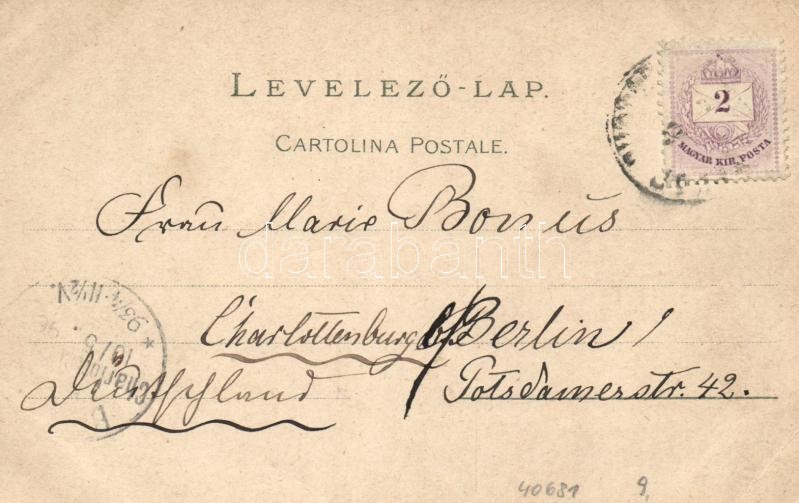 LEVELEZŐ-LAP.
CARTOLINA POSTALE.
2
MAGYAR KIR. POSTA
Frau Marie Bonus
Charlottenburg b/Berlin
Deutschland
Potsdamerstr. 42.
darabanth
40681 9,